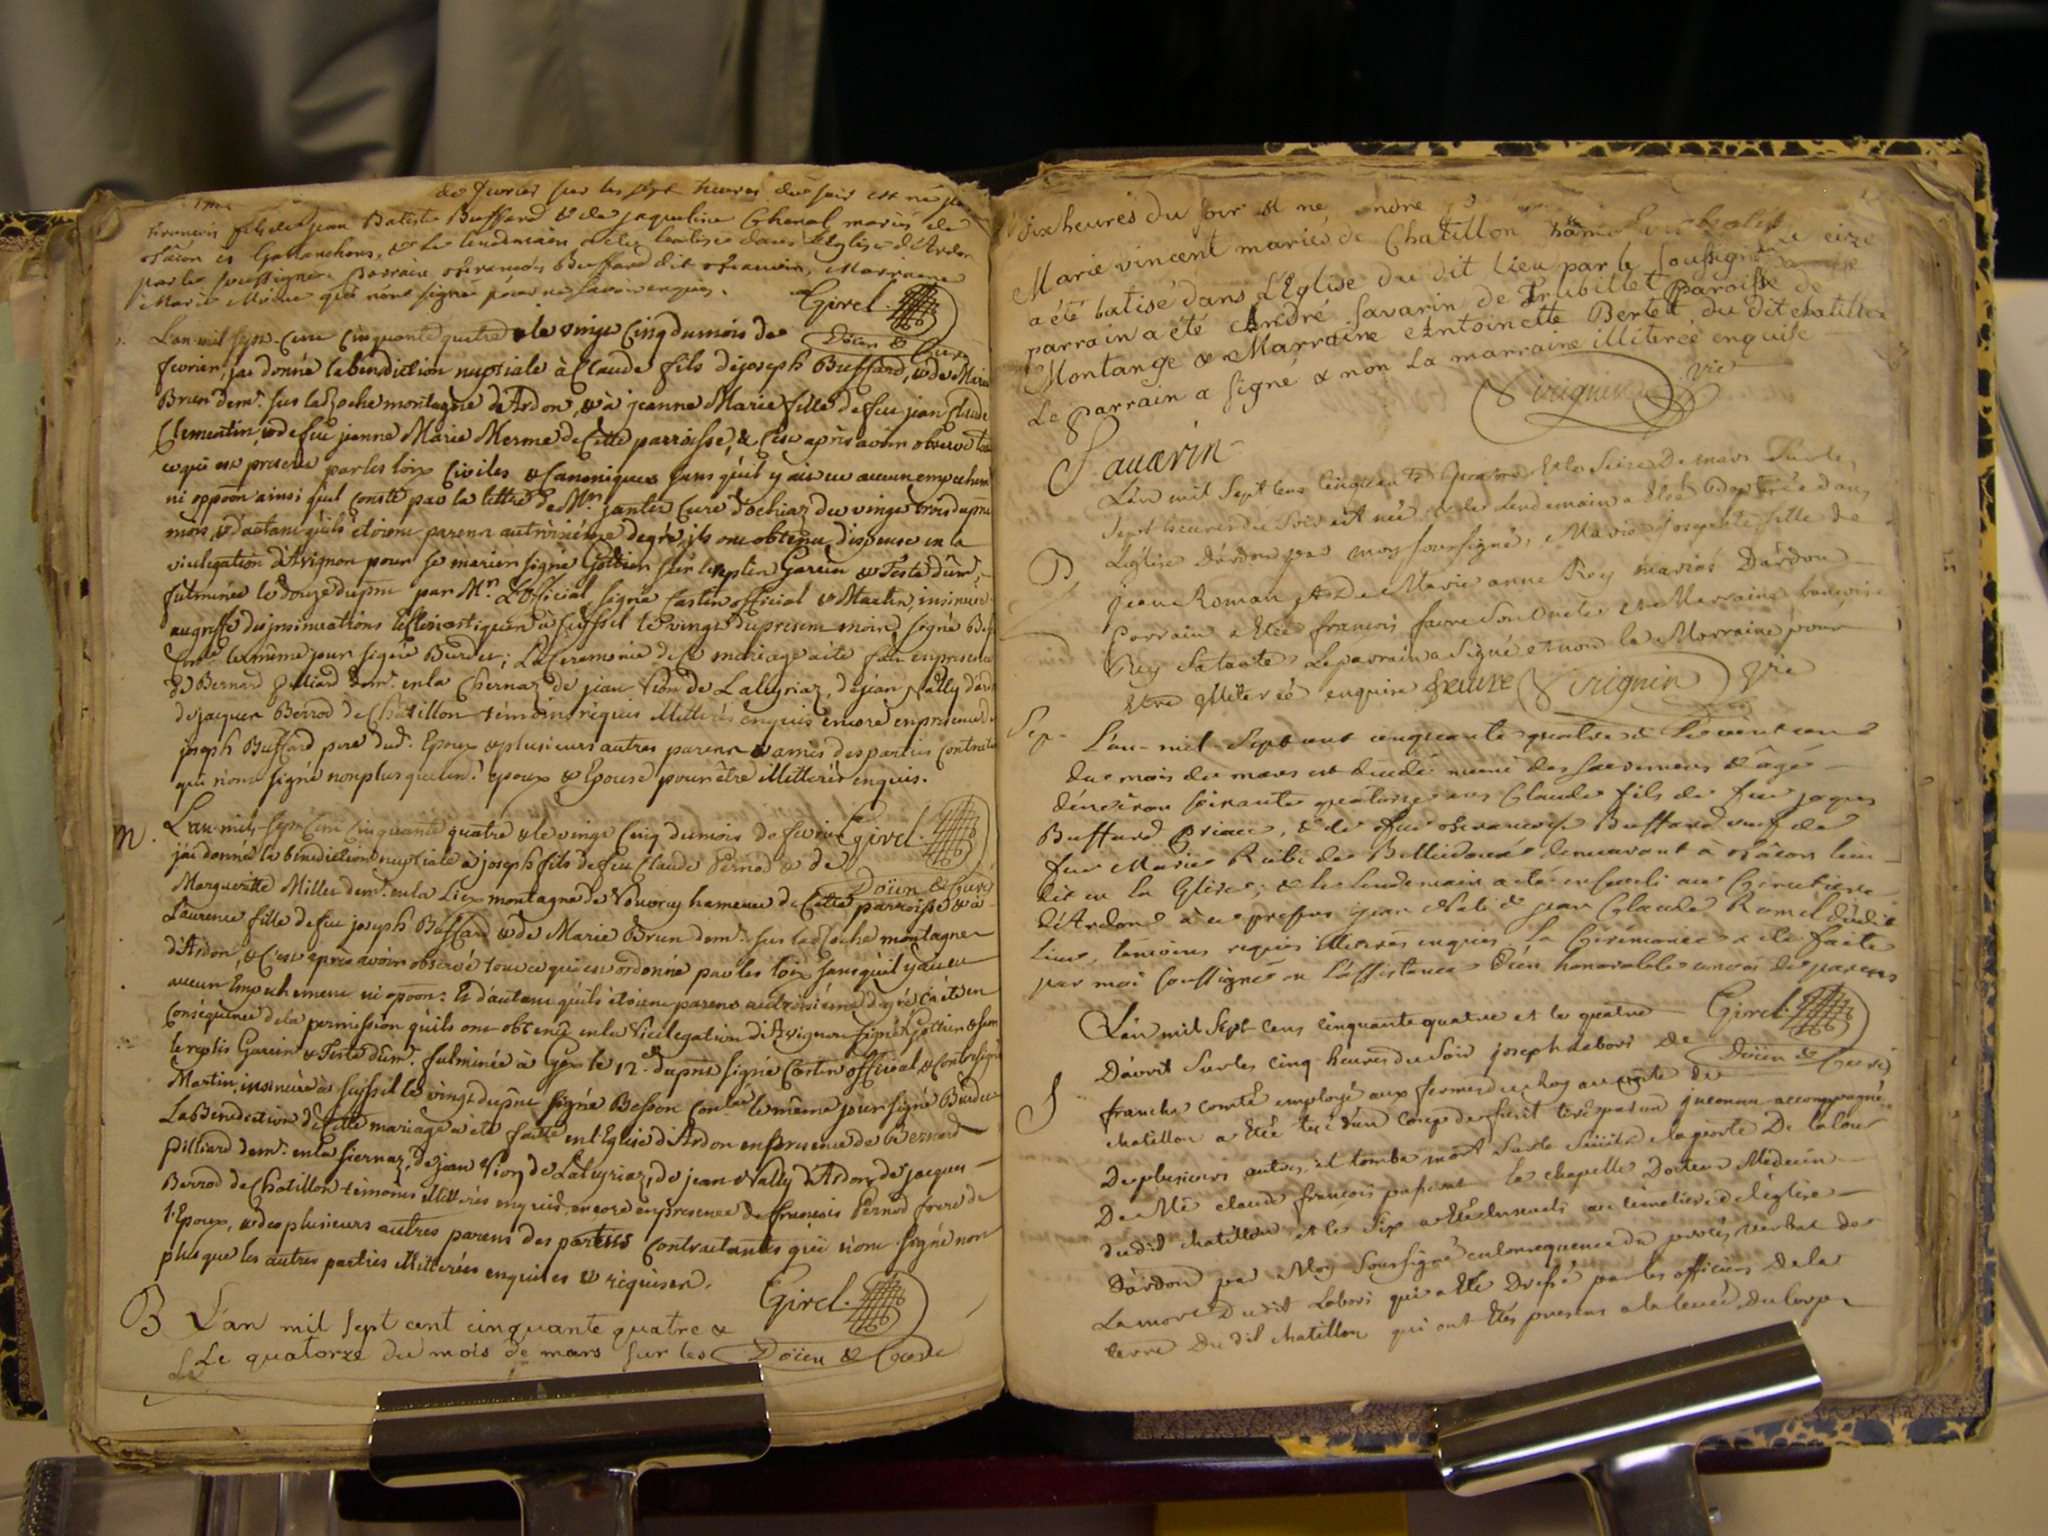 de fevrier sur les sept heures du soir est né
françois fils de jean Batiste Buffard & de jaqueline Chenal mariés de
& le lendemain a été batisé dans l'Eglise d'Ardon
par le soussigné Parrain françois Buffard dit Marraine
Marie qui n'ont signé pour ne sçavoir enquis.
Girel.
Doïen & Curé
L'an mil sept cens cinquante quatre & le vingt cinq du mois de
fevrier j'ai donné la benediction nuptiale à Claude fils de joseph Buffard, & de Marie
Brun dem.t sur la Roche montagne d'Ardon, & à jeanne Marie fille de feu jean Claude
Clementin, & de feu jeanne Marie Merme de Cette parroisse, & C'est après avoir observé tout
ce qui est prescrit par les loix Civiles & Canoniques sans qu'il y ait eu aucun empechem.
ni oppoon ainsi qu'il conste par la lettre de Mr. jantet Curé d'ochiaz du vingt trois du prnt
mois, & d'autant qu'ils étoient parens au troisième degré, ils ont obtenu dispense en la
vicelegation d'Avignon pour se marier signé Gottier sur le replis Garcin & Teste dûm.t
fulminée le douze du prnt par Mr. L'Official signé Castin official & Martin, insinuée
au greffe des insinuations Ecclesiastiques à Seyssel le vingt du present mois, signé
le même jour signé Burdet; La Ceremonie de Ce mariage a été faite en presence
de Bernard Pilliard dem.t en la Chernaz de jean Vion de Laleyriaz, de jean Nally d'Ardon
de jacques Berrod de Châtillon témoins requis illitterés enquis encore en presence de
joseph Buffard pere dud. Epoux & plusieurs autres parens & amis des parties contractantes
qui n'ont signé non plus que led. Epoux & Epouse pour être illitterés enquis.
Girel.
Doïen & Curé
M. L'an mil sept Cent Cinquante quatre & le vingt Cinq du mois de fevrier
j'ai donné la benediction nuptiale à joseph fils de feu Claude Pernod & de
Marguerite Millet dem.t en la Liex montagne de Vouvray hameau de Cette parroisse & à
Laurence fille de feu joseph Buffard & de Marie Brun dem.t sur la Roche montagne
d'Ardon, & C'est après avoir observé tout ce qui est ordonné par les loix sans qu'il y ait eu
aucun Empechement ni opoon: Et d'autant qu'ils étoient parens au troisième degré Ca été en
Conséquence de la permission qu'ils ont obtenu en la Vicelegation d'Avignon signé Gottier & sur
le replis Garcin & Teste dûm.t fulminée à Gex le 12 dupnt signé Castin official & Contresigné
Martin, insinuée à Seyssel le vingt du pnt signé Besson le même jour signé Burdet
La Benediction de Cette mariage a été faite en l'Eglise d'Ardon en presence de Bernard
Pilliard dem.t en la Siernaz, de jean Vion de Laleyriaz, de jean Nally d'Ardon, de jacques
Berrod de Chatillon témoins illitterés enquis, encore en presence de françois Pernod frere de
l'Epoux, & des plusieurs autres parens des parties Contractantes qui n'ont signé non
plus que les autres parties illitterées enquises & requises.
Girel.
Doïen & Curé
B L'an mil sept cent cinquante quatre &
Le quatorze du mois de mars sur les
six heures du soir est né andré
Marie vincent mariés de Chatillon
a été batisé dans L'Eglise du dit Lieu par le soussigné
parrain a été André Savarin de Trubillet Paroisse de
Montange & Marraine Antoinette Bertet du dit chatillon
Le parrain a signé & non La marraine illiterée enquise
Sirignin vic
Savarin
B. L'an mil Sept Cens Cinquante Quatre Et le Seize De mars Sur les
Sept heures du Soir est née & le Lendemain a Etée Baptisée dans
L'église D'ardon par moy soussigné, Marie josephte fille de
jean Roman et De Marie anne Rey mariés D'ardon
Parrain a Etée françois favre Son oncle et Marraine françoise
Rey Sa tante, Le parrain a Signé et non la Marraine pour
Etre illiterée enquise favre Sirignin Vic
Sep. L'an mil Sept cent cinquante quatre &
du mois de mars est decedé muni des sacremens & âgé
d'environ soixante quatorze ans Claude fils de feu jaques
Buffard & de feu françoise Buffard veuf de
feu Marie demeurant à lieu
dit en la Glise; & le lendemain a été enseveli au Cimetiere
d'Ardon à ce presens jean Nali & jean Claude Ramel dudit
lieu, temoins requis illiterés enquis, la Cérémonie a été faite
par moi soussigné en l'assistance d'un honorable convoi de parens
Girel.
Doïen & Curé
S L'an mil Sept Cens Cinquante quatre et le quatre
D'avril Sur les cinq heures du Soir joseph Labori de
franche comté employé aux fermes du Roy au poste de
chatillon a Etée tué d'un Coup de fusil tiré par un inconnu accompagné
De plusieurs autres, et tombé mort Sur le Seüil de la porte De la Cour
De Me claude françois passerat la chapelle Docteur Medecin
dudit chatillon et le Six a Eté Enseveli au Cimetiere de l'église
D'ardon par Moy Soussigné en Consequence du procés verbal de
La mort Du dit Labori qui a Eté Dressé par les officiers De la
terre Du dit chatillon qui ont Etés presens a la levée du Corps